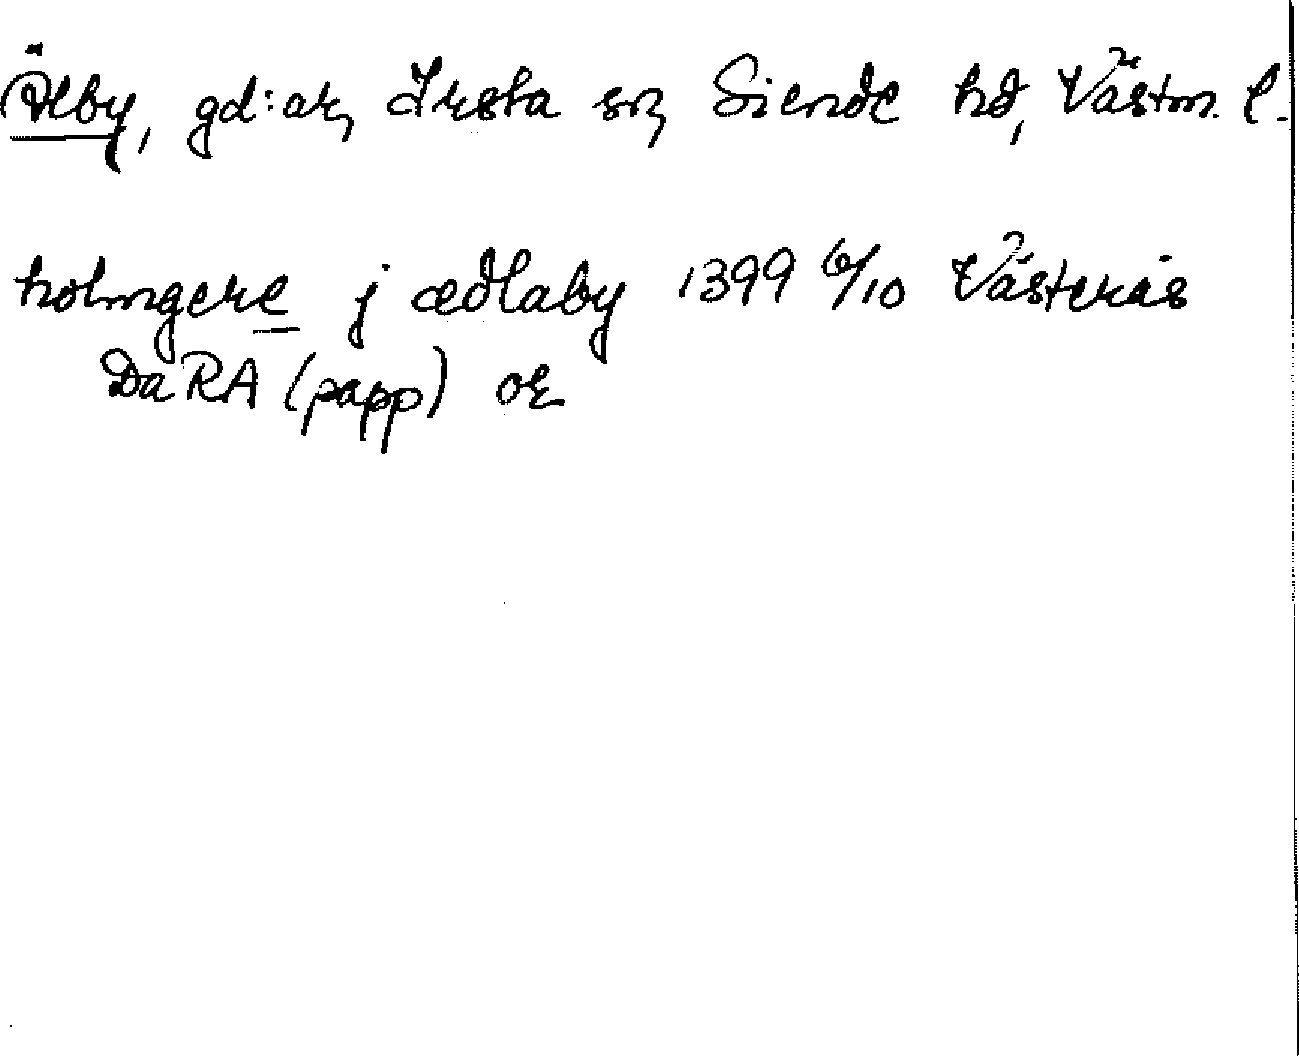 Älby, gd:ar, Irsta sn, Siende hd, Västm. l.
holmgere j ædlaby 1399 6/10 Västerås
Da RA (papp) or